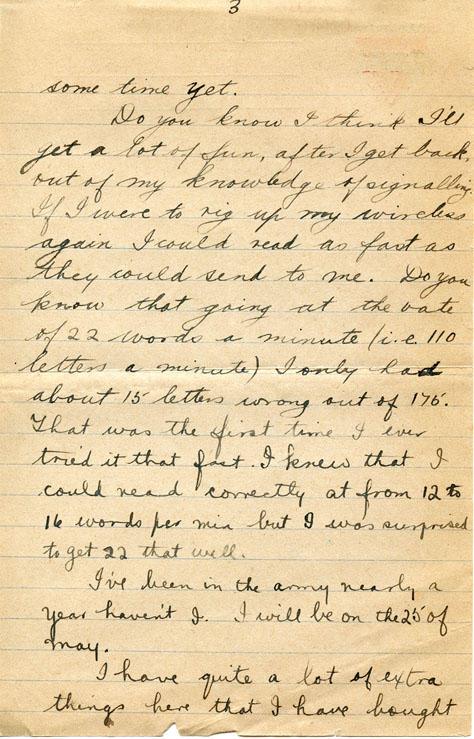 3
some time yet.
Do you know I think I'll
get a lot of fun, after I get back,
out of my knowledge of signalling.
If I were to rig up my wireless
again I could read as fast as
they could send to me. Do you
know that going at the rate
of 22 words a minute (i.e. 110
letters a minute) I only had
about 15 letters wrong out of 175.
That was the first time I ever
tried it that fast. I knew that I
could read correctly at from 12 to
16 words per min but I was surprised
to get 22 that well.
I've been in the army nearly a
year haven't I. I will be on the 25 of
May.
I have quite a lot of extra
things here that I have bought